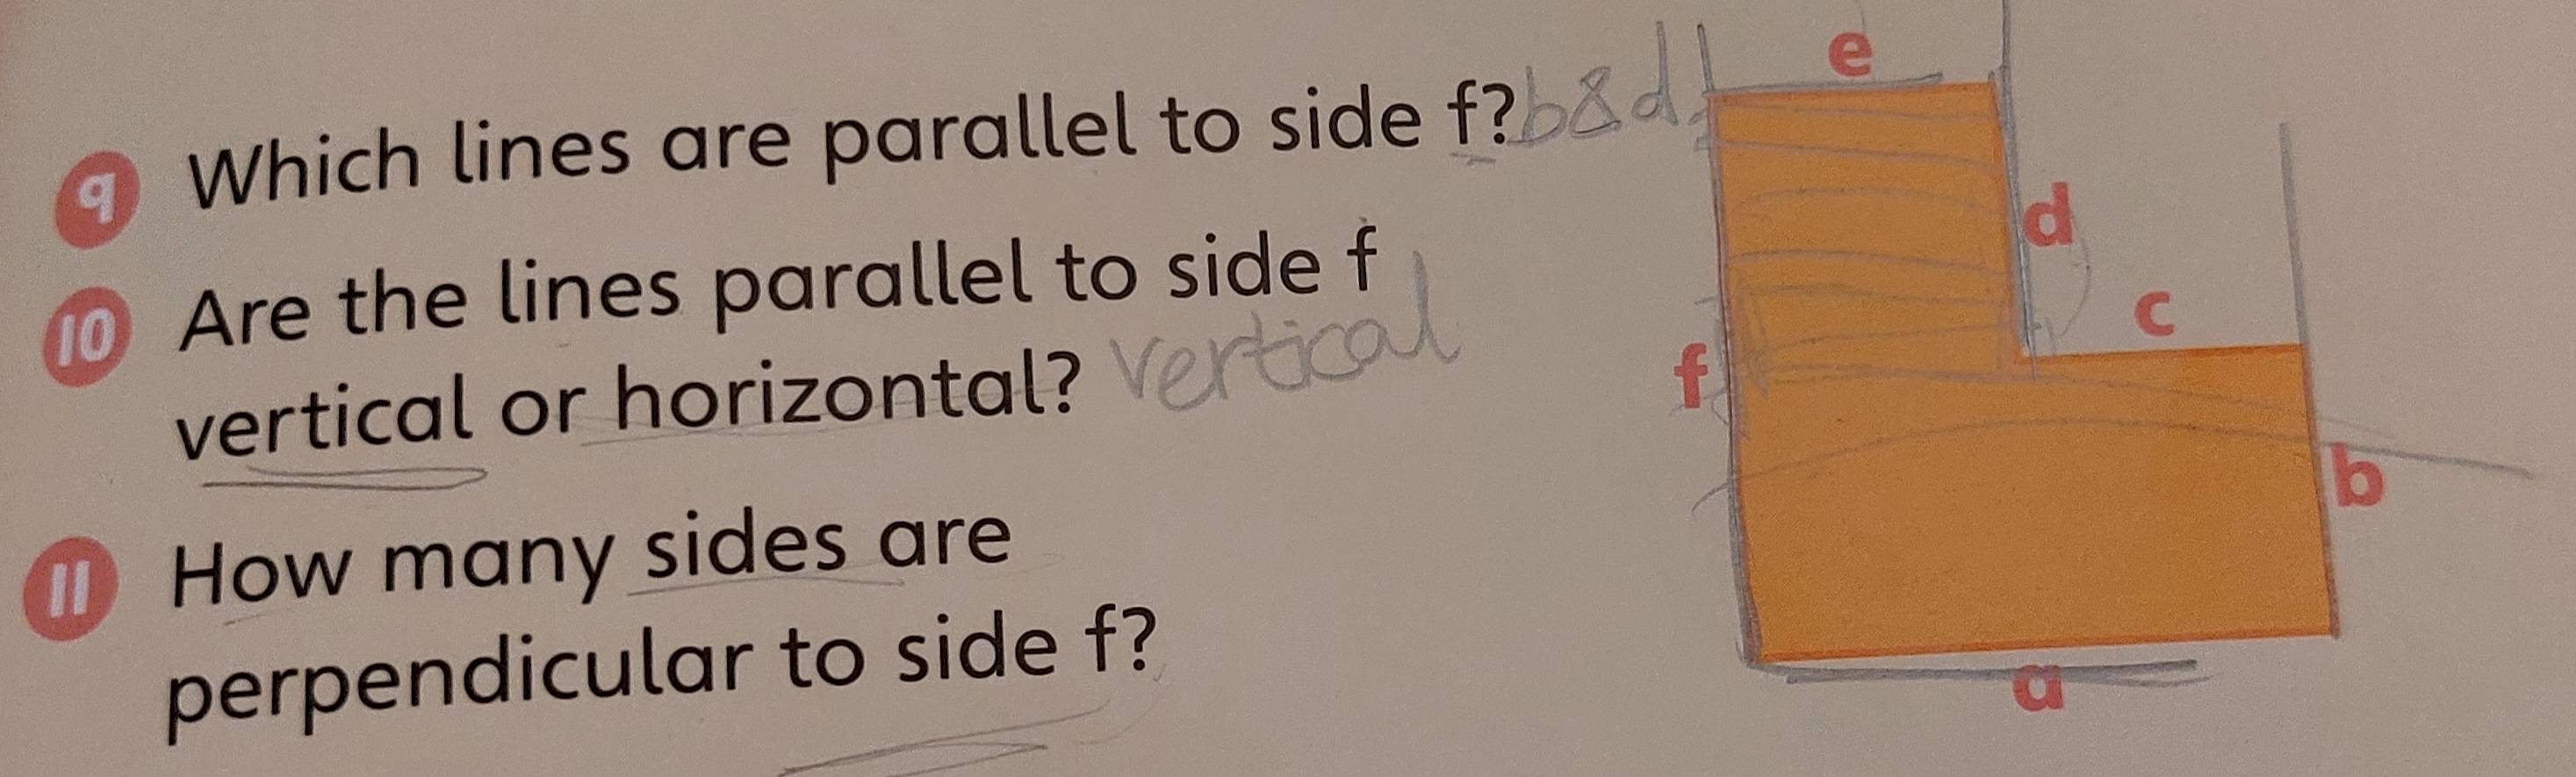 9 Which lines are parallel to side f? b&d
10 Are the lines parallel to side f
vertical or horizontal? vertical
11 How many sides are
perpendicular to side f?
e
d
c
f
b
a